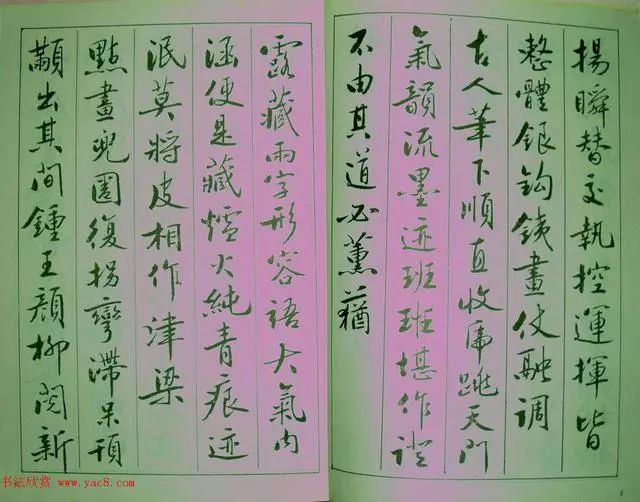 揚瞬替交執控運揮皆
整體銀鈎鉄畫仗融調
古人筆下順直收虎跳天門
氣韻流墨迹班班堪作證
不由其道必薰蕕
露藏兩字形容語大氣内
涵便是藏爐火純青痕迹
泯莫將皮相作津梁
點畫兜圈復拐彎滯呆項
顙出其间鍾王顏柳閱新
书法欣赏 www.yac8.com